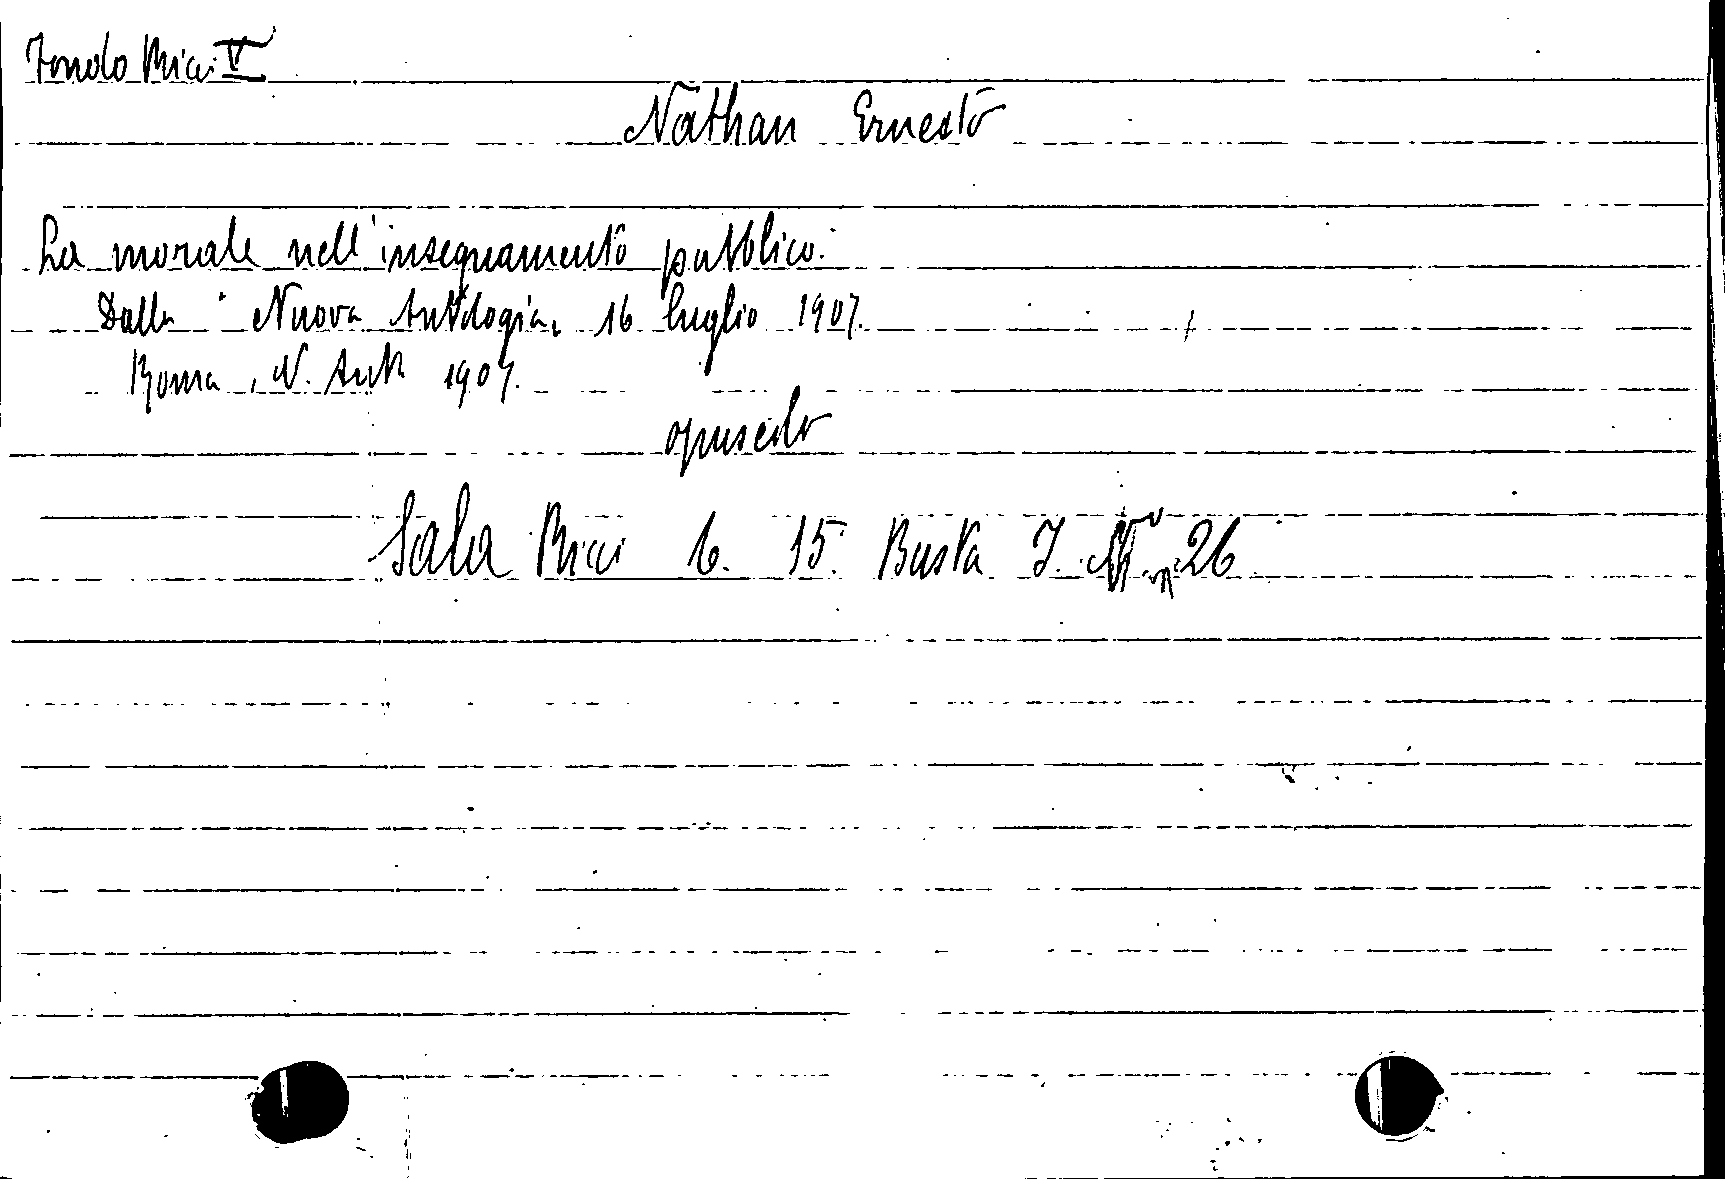 Fondo Ricci V
Nathan Ernesto
La morale nell'insegnamento pubblico.
Dalla "Nuova Antologia, 16 luglio 1907.
Roma, N. Ant. 1907.
opuscolo
Sala Ricci 6. 15. Busta I. 26